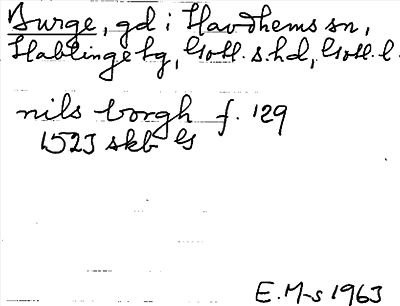 Burge, gd i Havdhems sn,
Hablinge tg, Gotl. s. hd, Gotl. l.
nils borgh f. 129
1523 skb G
E. M-s 1963